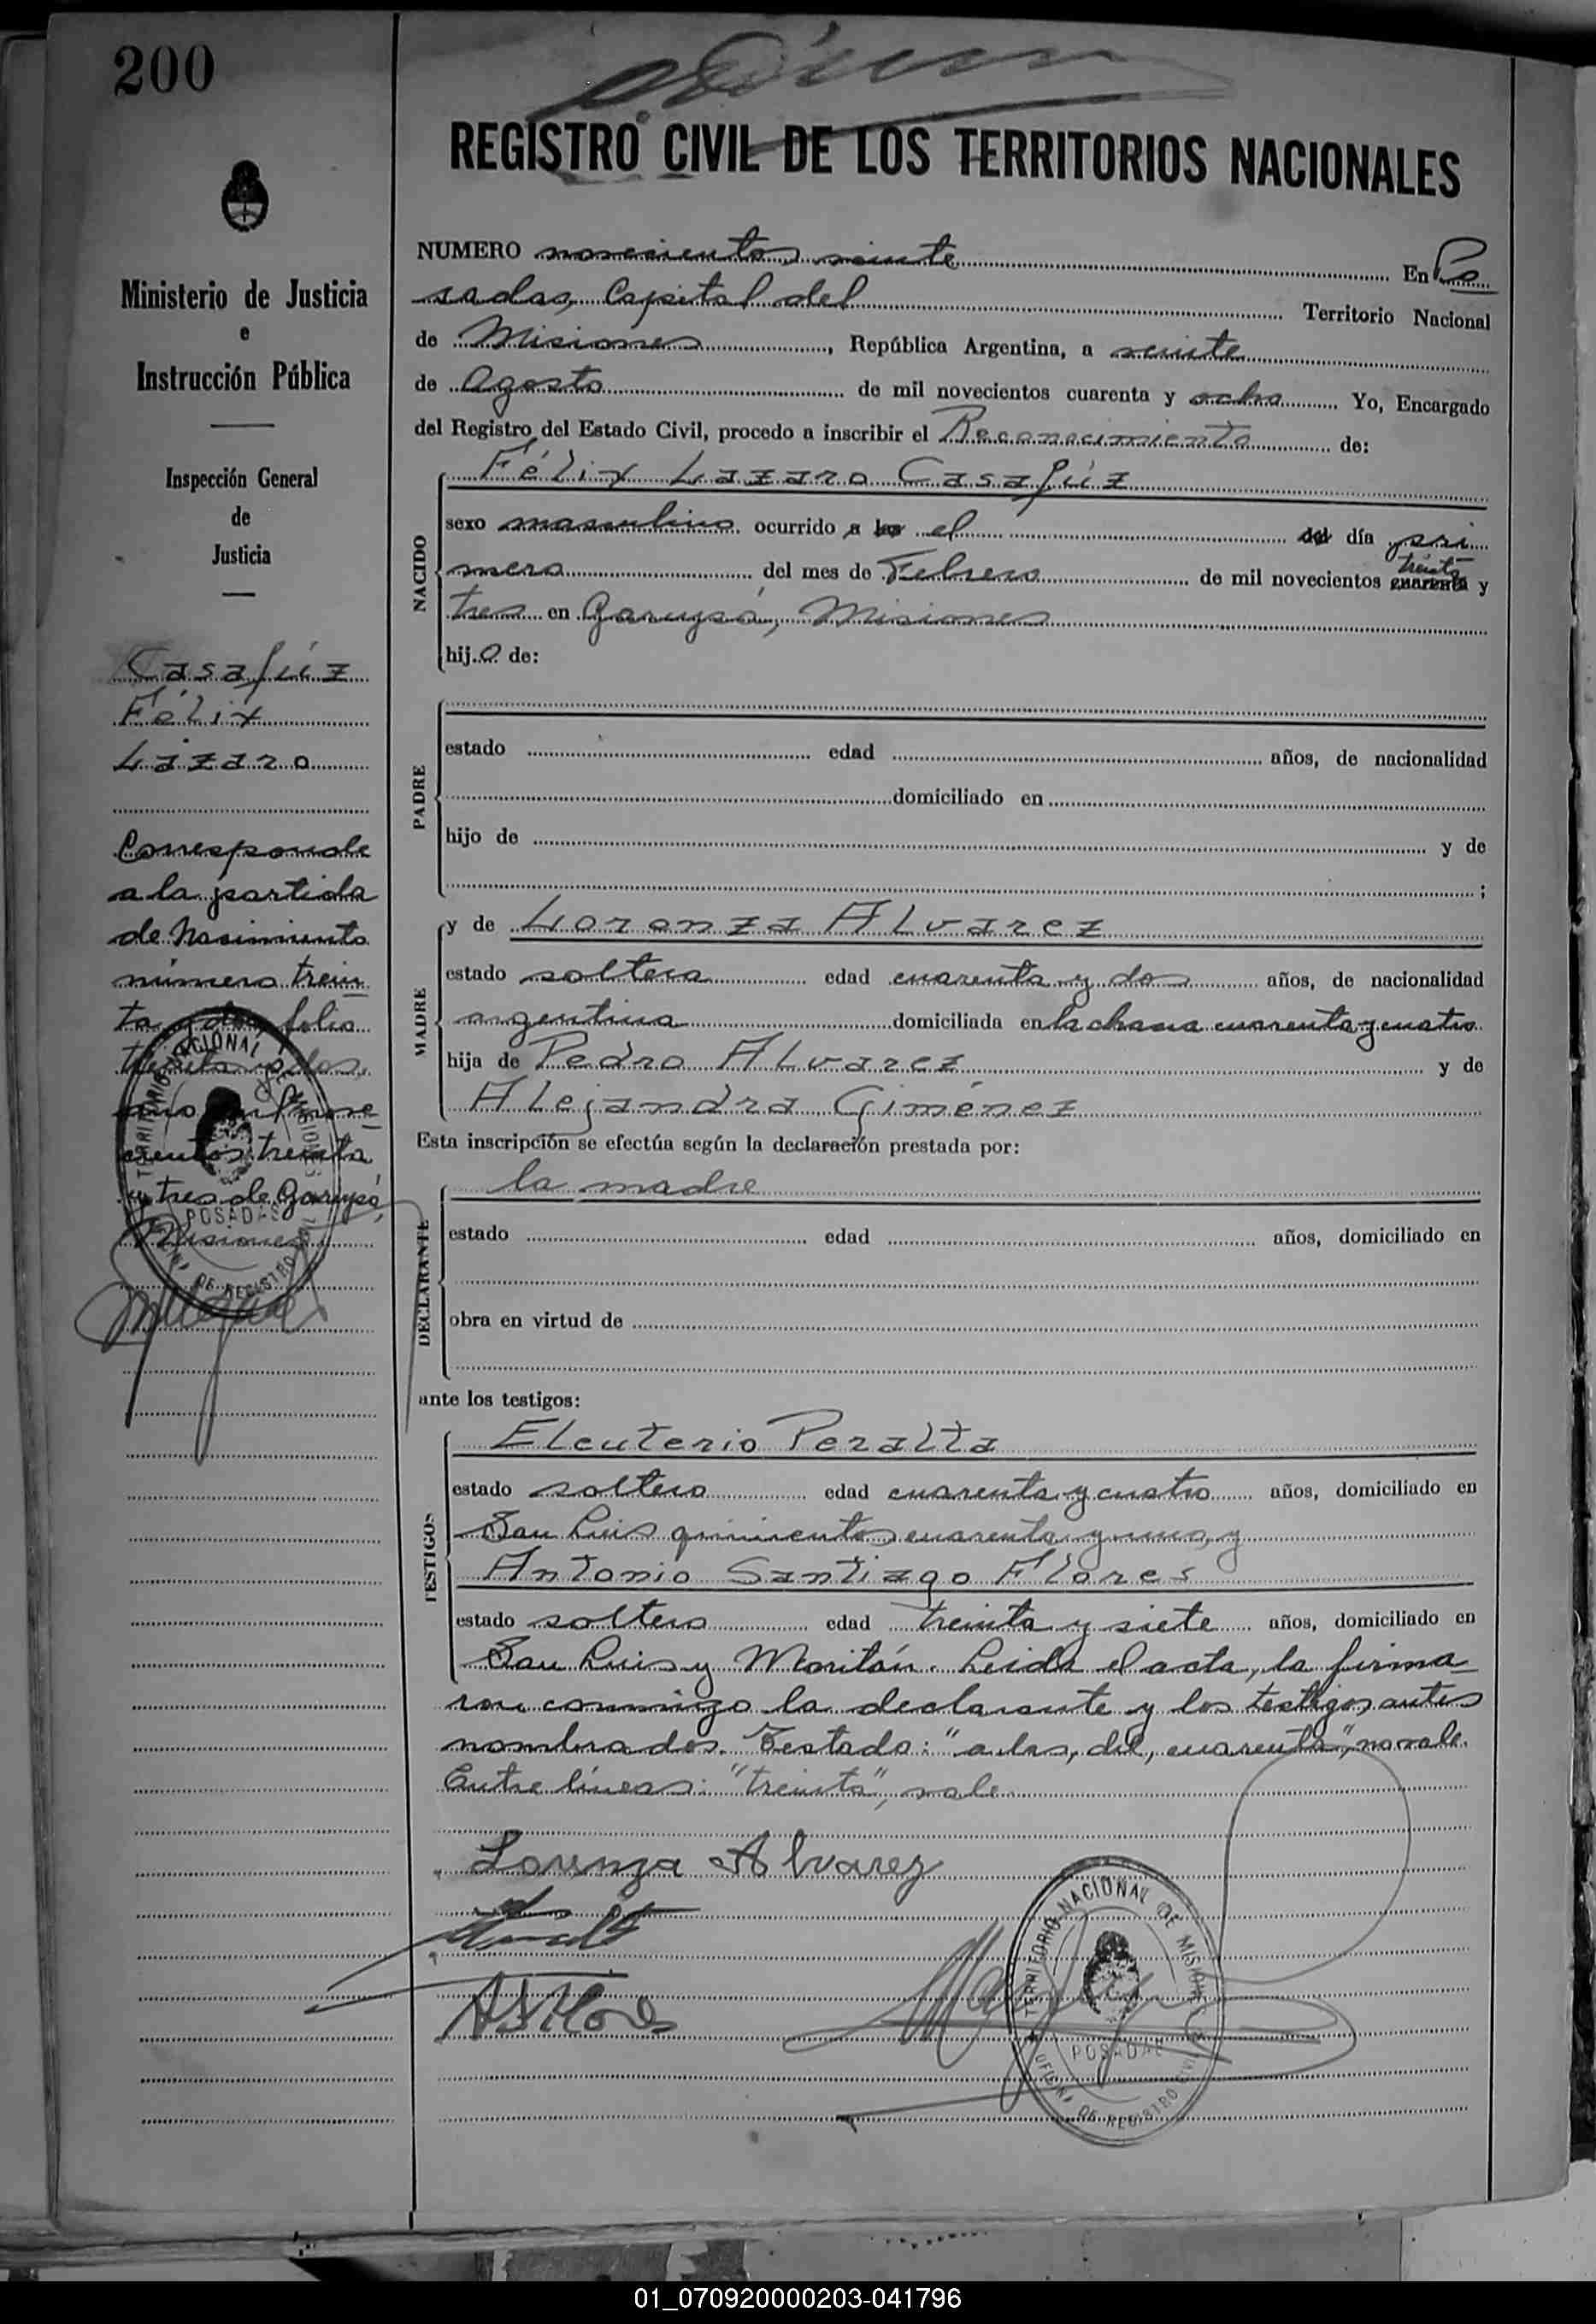 200
REGISTRO CIVIL DE LOS TERRITORIOS NACIONALES
Ministerio de Justicia
e
Instrucción Pública
Inspección General
de
Justicia
Casafúz
Félix
Lázaro
Corresponde
a la partida
de Nacimiento
número trein
ta y dos folio
treinta y dos,
año mil nove
cientos treinta
y tres de Garupá,
Misiones
TERRITORIO NACIONAL DE MISIONES
POSADAS
OFICINA DE REGISTRO CIVIL
NUMERO novecientos veinte En Po
sadas, Capital del Territorio Nacional
de Misiones, República Argentina, a veinte
de Agosto de mil novecientos cuarenta y ocho Yo, Encargado
del Registro del Estado Civil, procedo a inscribir el Reconocimiento de:
NACIDO
Félix Lazaro Casafúz
sexo masculino ocurrido a las el del día pri
mero del mes de Febrero de mil novecientos cuarenta treinta y
tres en Garupá, Misiones
hijo de:
PADRE
estado edad años, de nacionalidad
domiciliado en
hijo de y de
;
MADRE
y de Lorenza Alvarez
estado soltera edad cuarenta y dos años, de nacionalidad
argentina domiciliada en la chacra cuarenta y cuatro
hija de Pedro Alvarez y de
Alejandra Giménez
Esta inscripción se efectúa según la declaración prestada por:
DECLARANTE
la madre
estado edad años, domiciliado en
obra en virtud de
ante los testigos:
TESTIGOS
Eleuterio Peralta
estado soltero edad cuarenta y cuatro años, domiciliado en
San Luis quinientos cuarenta y uno, y
Antonio Santiago Flores
estado soltero edad treinta y siete años, domiciliado en
San Luis y Moritán. Leida el acta, la firma
ron conmigo la declarante y los testigos antes
nombrados. Testado: "a las, del, cuarenta", no vale.
Entre líneas: "treinta", vale
Lorenza Alvarez
ASFlores
TERRITORIO NACIONAL DE MISIONES
POSADAS
OFICINA DE REGISTRO CIVIL
01_070920000203-041796